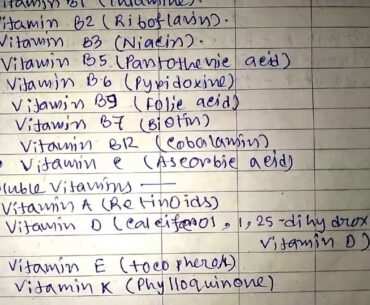 Vitamin B1 (Thiamine).
Vitamin B2 (Riboflavin).
Vitamin B3 (Niacin).
Vitamin B5 (Pantothenic acid)
Vitamin B6 (Pyridoxine)
Vitamin B9 (Folic acid)
Vitamin B7 (Biotin)
Vitamin B12 (Cobalamin)
Vitamin C (Ascorbic acid)
oluble Vitamins —
Vitamin A (Retinoids)
Vitamin D (calciferol, 1,25-dihydrox
Vitamin D)
Vitamin E (tocopherol)
Vitamin K (Phylloquinone)